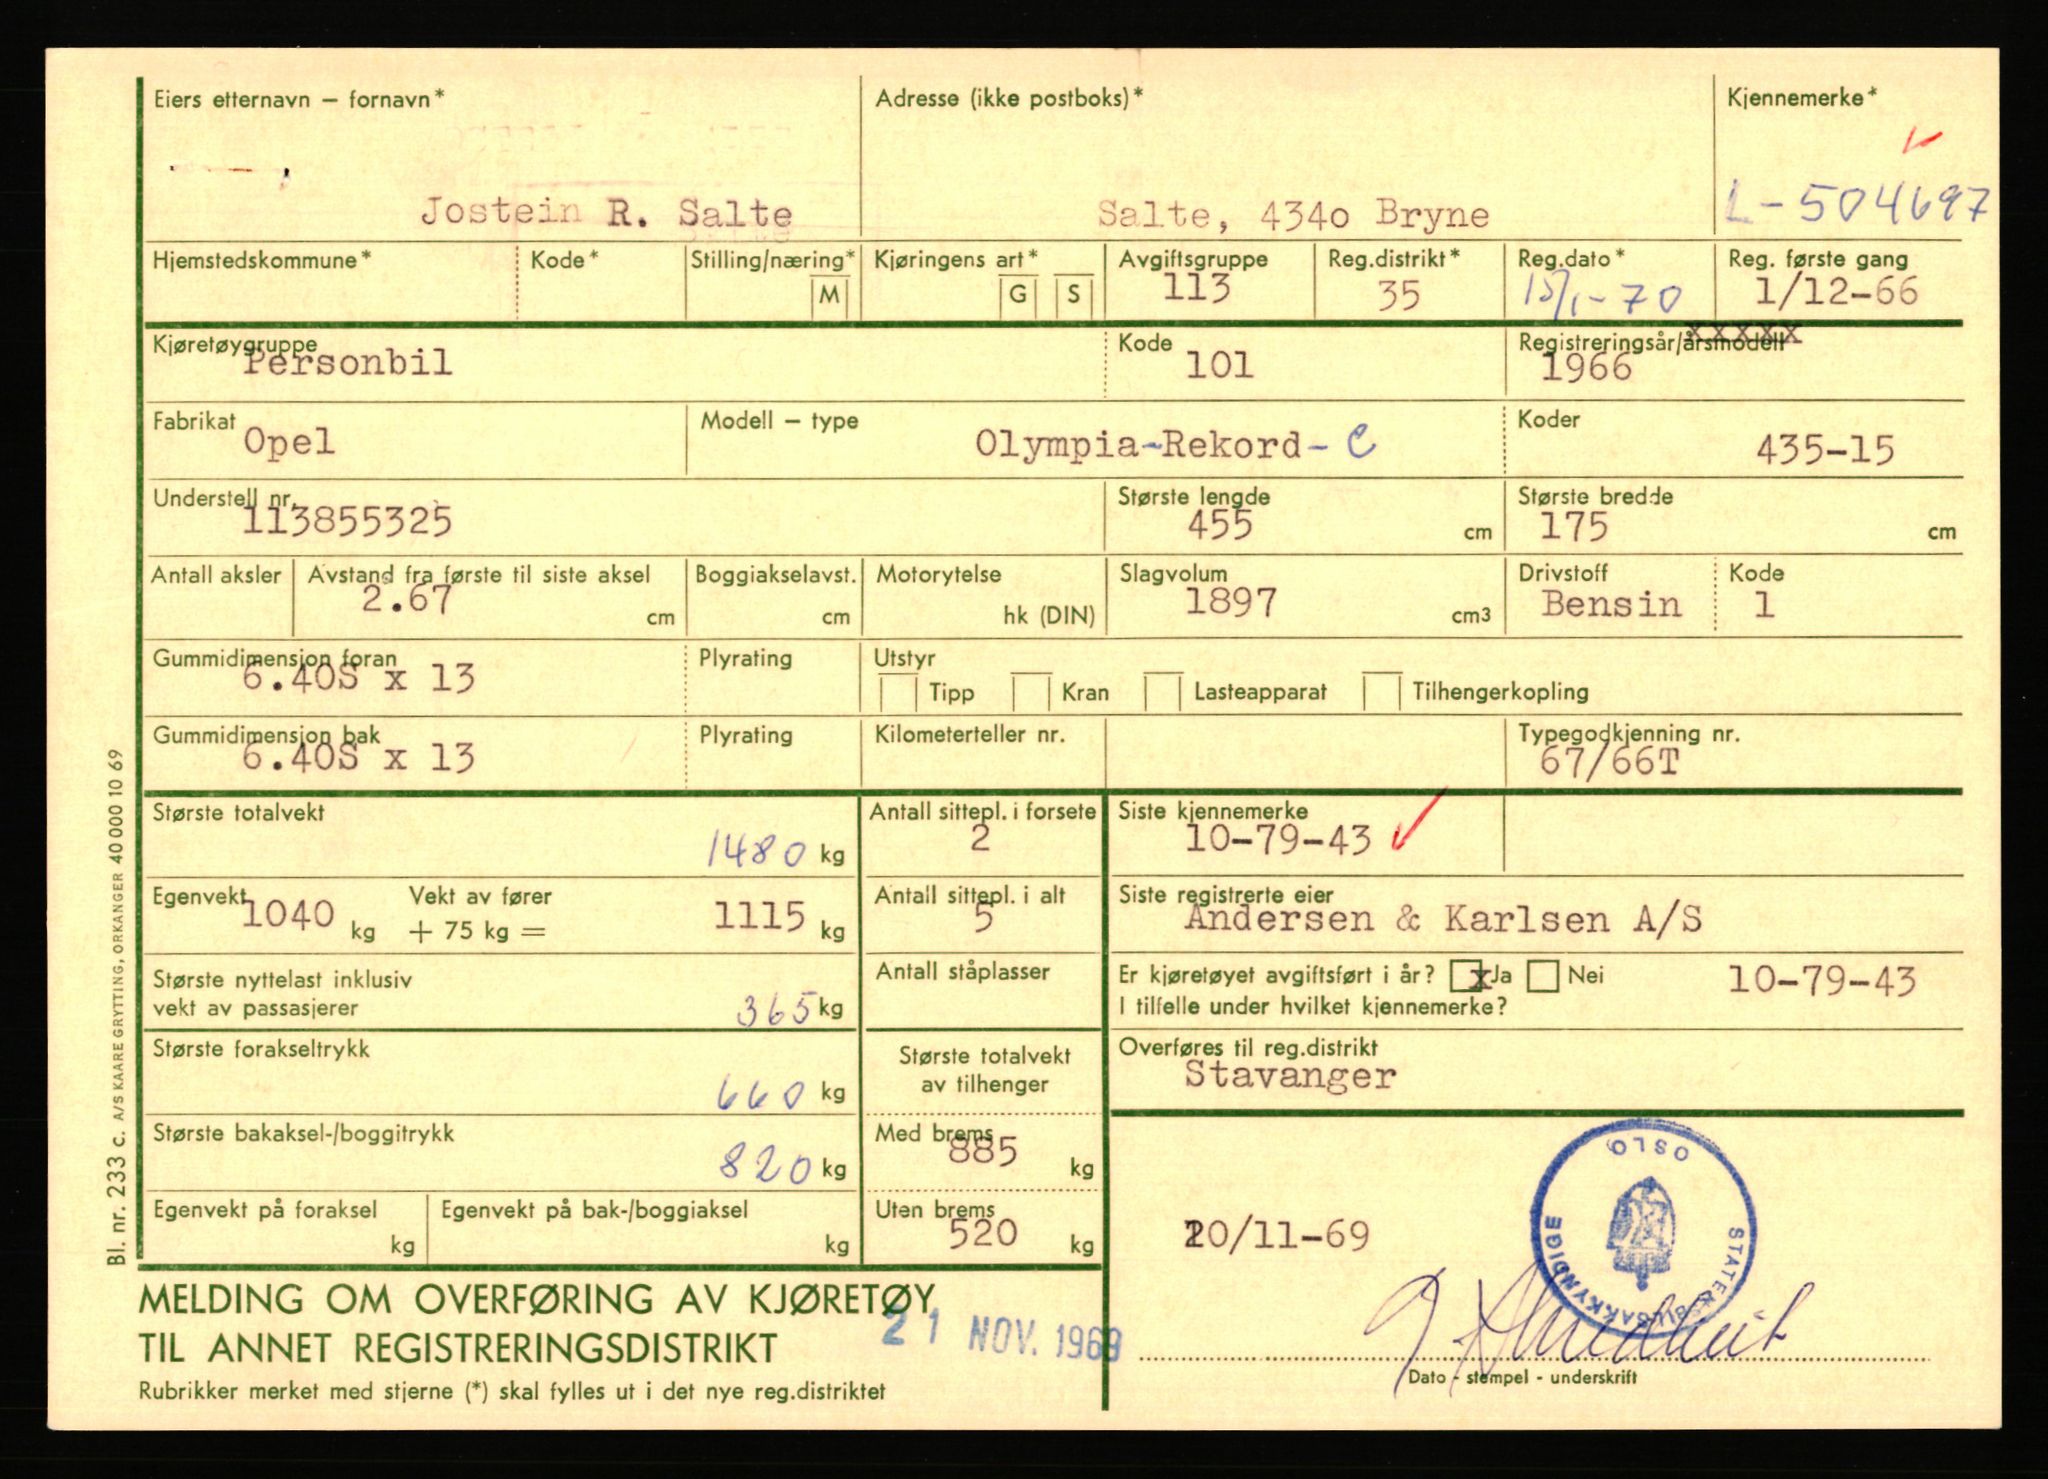 Eiers etternavn – fornavn* Adresse (ikke postboks)* Kjennemerke*
Jostein R. Salte Salte, 4340 Bryne L-504697
Hjemstedskommune* Kode* Stilling/næring* Kjøringens art* Avgiftsgruppe Reg.distrikt* Reg.dato* Reg. første gang
M G S 113 35 15/1-70 1/12-66
Kjøretøygruppe Kode Registreringsår/årsmodell xxxxx
Personbil 101 1966
Fabrikat Modell – type Koder
Opel Olympia-Rekord-C 435-15
Understell nr. Største lengde Største bredde
113855325 455 cm 175 cm
Antall aksler Avstand fra første til siste aksel Boggiakselavst. Motorytelse Slagvolum Drivstoff Kode
2.67 cm cm hk (DIN) 1897 cm3 Bensin 1
Gummidimensjon foran Plyrating Utstyr
6.40S x 13 Tipp Kran Lasteapparat Tilhengerkopling
Gummidimensjon bak Plyrating Kilometerteller nr. Typegodkjenning nr.
6.40S x 13 67/66T
Største totalvekt Antall sittepl. i forsete Siste kjennemerke
1480 kg 2 10-79-43
Egenvekt Vekt av fører Antall sittepl. i alt Siste registrerte eier
1040 kg + 75 kg = 1115 kg 5 Andersen & Karlsen A/S
Største nyttelast inklusiv Antall ståplasser Er kjøretøyet avgiftsført i år? x Ja Nei 10-79-43
vekt av passasjerer 365 kg I tilfelle under hvilket kjennemerke?
Største forakseltrykk Største totalvekt Overføres til reg.distrikt
660 kg av tilhenger Stavanger
Største bakaksel-/boggitrykk Med brems
820 kg 885 kg
Egenvekt på foraksel Egenvekt på bak-/boggiaksel Uten brems
kg kg 520 kg
20/11-69
STATENS BILSAKKYNDIGE OSLO
MELDING OM OVERFØRING AV KJØRETØY
TIL ANNET REGISTRERINGSDISTRIKT
21 NOV. 1969
Dato - stempel - underskrift
Rubrikker merket med stjerne (*) skal fylles ut i det nye reg.distriktet
Bl. nr. 233 C. A/S KAARE GRYTTING, ORKANGER 40 000 10 69